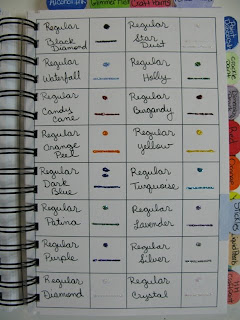 Glimmer Mist
Craft Marker
Regular Black Diamond
Regular Star Dust
Regular Waterfall
Regular Holly
Regular Candy Cane
Regular Burgandy
Regular Orange Peel
Regular Yellow
Regular Dark Blue
Regular Turquoise
Regular Patina
Regular Lavender
Regular Purple
Regular Silver
Regular Diamond
Regular Crystal